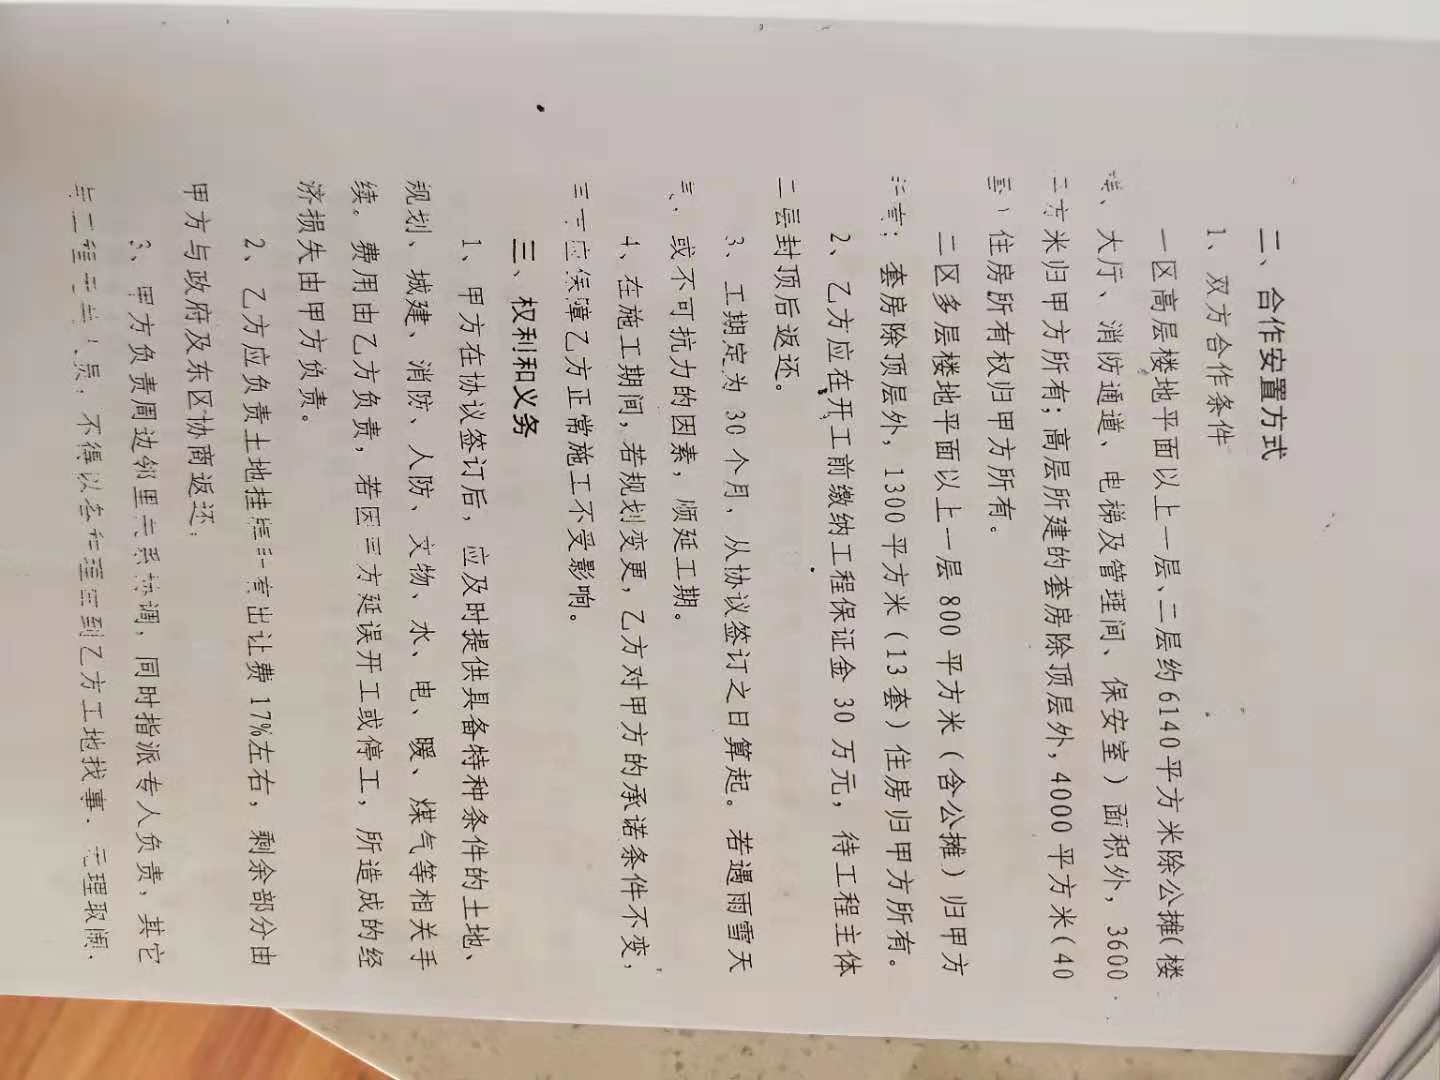 二、合作安置方式
1、双方合作条件
一区高层楼地平面以上一层、二层约6140平方米除公摊(楼
梯、大厅、消防通道、电梯及管理间、保安室)面积外,3600
平方米归甲方所有;高层所建的套房除顶层外,4000平方米(40
套)住房所有权归甲方所有。
二区多层楼地平面以上一层800平方米(含公摊)归甲方
所有;套房除顶层外,1300平方米(13套)住房归甲方所有。
2、乙方应在开工前缴纳工程保证金30万元,待工程主体
二层封顶后返还。
3、工期定为30个月,从协议签订之日算起。若遇雨雪天
或不可抗力的因素,顺延工期。
4、在施工期间,若规划变更,乙方对甲方的承诺条件不变,
应保障乙方正常施工不受影响。
三、权利和义务
1、甲方在协议签订后,应及时提供具备特种条件的土地、
规划、城建、消防、人防、文物、水、电、暖、煤气等相关手
续。费用由乙方负责,若因甲方延误开工或停工,所造成的经
济损失由甲方负责。
2、乙方应负责土地挂牌出让费17%左右,剩余部分由
甲方与政府及东区协商返还。
3、甲方负责周边邻里关系协调,同时指派专人负责,其它
员,不得以各种理由到乙方工地找事、无理取闹、